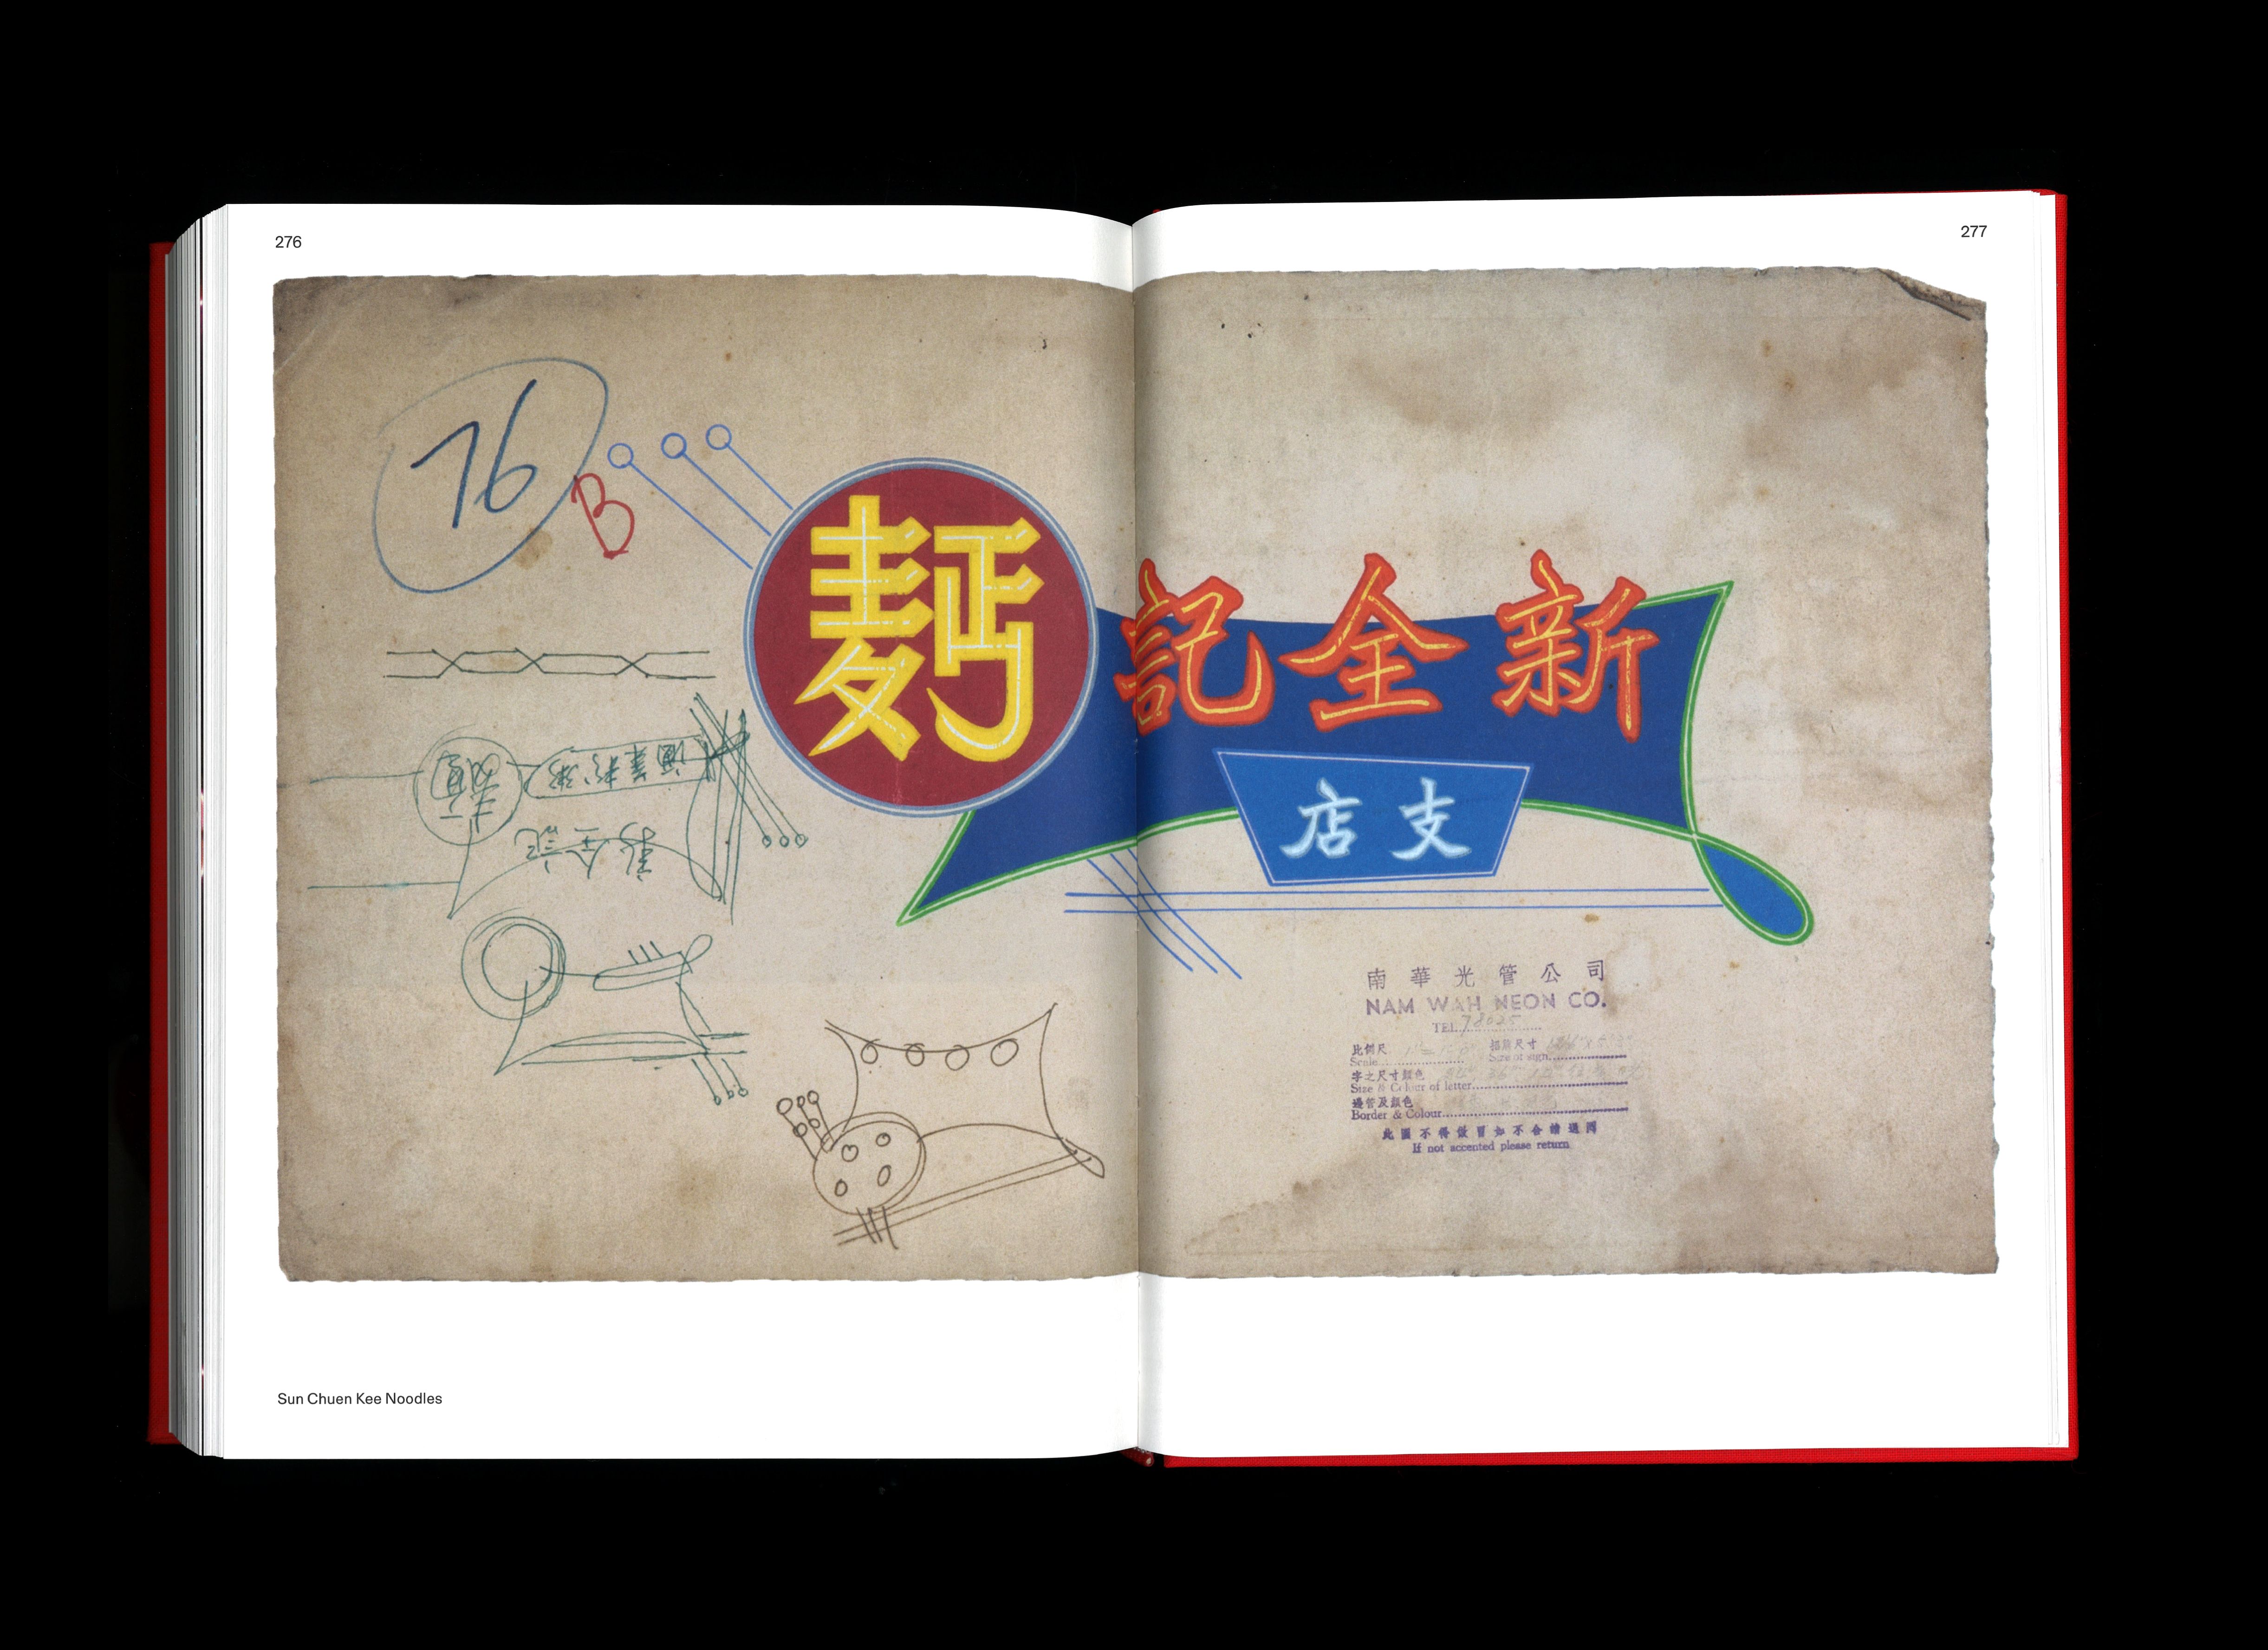 276
277
76
B
新全記麪
支店
新全記
南華光管公司
NAM WAH NEON CO.
TEL. 78025
比例尺 招牌尺寸
Scale Size of sign
字之尺寸顏色
Size & Colour of letter
邊管及顏色
Border & Colour
此圖不得倣冒如不合請退囘
If not accented please return
Sun Chuen Kee Noodles